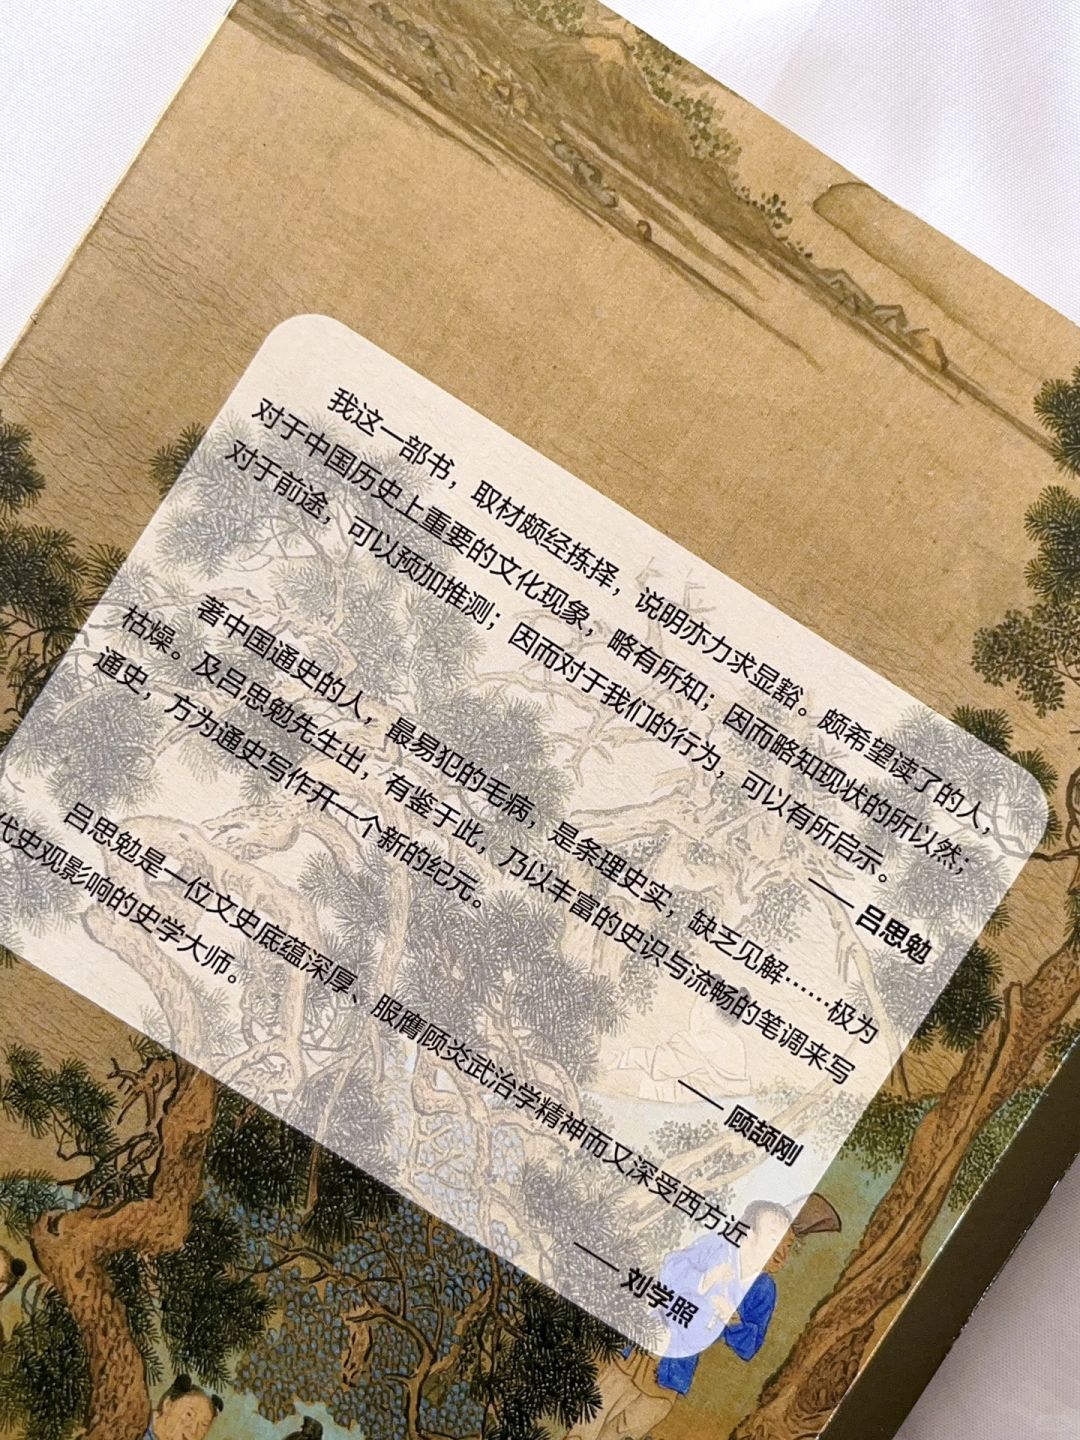 我这一部书，取材颇经拣择，说明亦力求显豁。颇希望读了的人，
对于中国历史上重要的文化现象，略有所知；因而略知现状的所以然；
对于前途，可以预加推测；因而对于我们的行为，可以有所启示。
——吕思勉
著中国通史的人，最易犯的毛病，是条理史实，缺乏见解……极为
枯燥。及吕思勉先生出，有鉴于此，乃以丰富的史识与流畅的笔调来写
通史，方为通史写作开一个新的纪元。
——顾颉刚
吕思勉是一位文史底蕴深厚、服膺顾炎武治学精神而又深受西方近
代史观影响的史学大师。
——刘学照